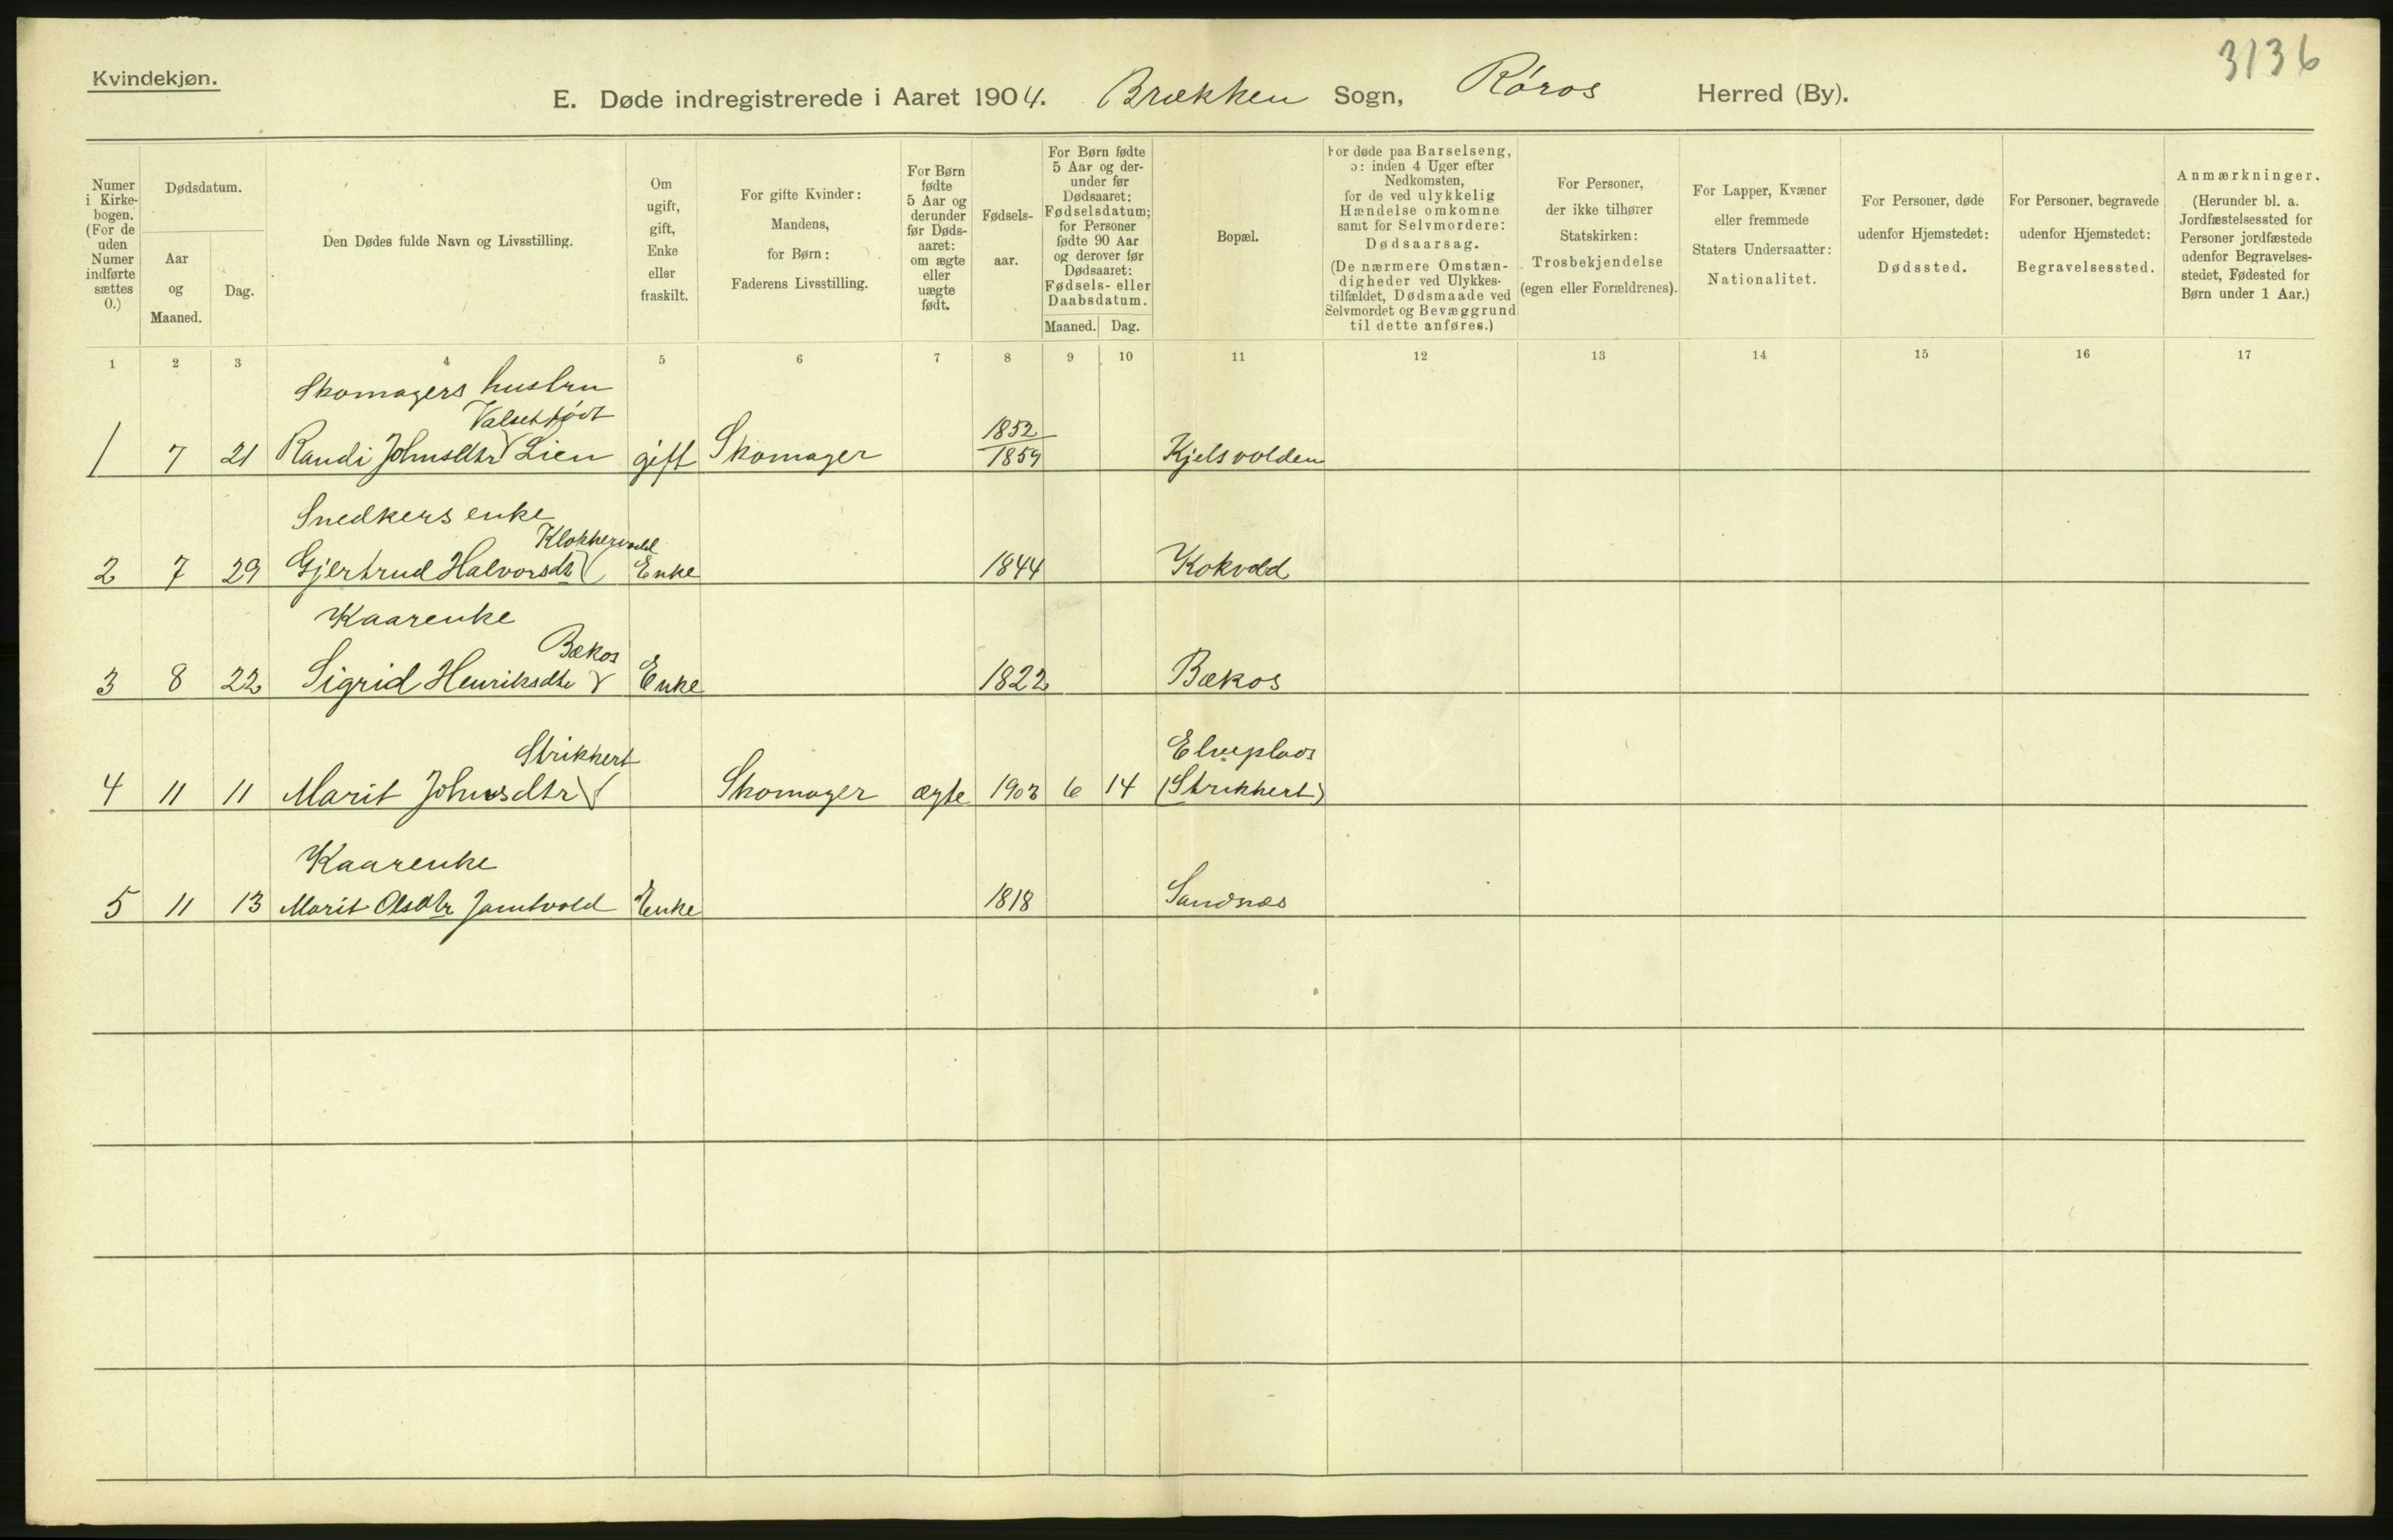 Kvindekjøn.
3136
E. Døde indregistrerede i Aaret 1904. Brækken Sogn, Røros Herred (By).
Numer i Kirkebogen. (For de uden Numer indførte sættes 0.)
Dødsdatum.
Aar og Maaned.
Dag.
Den Dødes fulde Navn og Livsstilling.
Om ugift, gift, Enke eller fraskilt.
For gifte Kvinder: Mandens, for Børn: Faderens Livsstilling.
For Børn fødte 5 Aar og derunder før Dødsaaret: om ægte eller uægte født.
Fødselsaar.
For Børn fødte 5 Aar og derunder før Dødsaaret: Fødselsdatum; for Personer fødte 90 Aar og derover før Dødsaaret: Fødsels- eller Daabsdatum.
Maaned. Dag.
Bopæl.
For døde paa Barselseng, ɔ: inden 4 Uger efter Nedkomsten, for de ved ulykkelig Hændelse omkomne samt for Selvmordere: Dødsaarsag. (De nærmere Omstændigheder ved Ulykkestilfældet, Dødsmaade ved Selvmordet og Bevæggrund til dette anføres.)
For Personer, der ikke tilhører Statskirken: Trosbekjendelse (egen eller Forældrenes).
For Lapper, Kvæner eller fremmede Staters Undersaatter: Nationalitet.
For Personer, døde udenfor Hjemstedet: Dødssted.
For Personer, begravede udenfor Hjemstedet: Begravelsessted.
Anmærkninger. (Herunder bl. a. Jordfæstelsessted for Personer jordfæstede udenfor Begravelsesstedet, Fødested for Børn under 1 Aar.)
1 2 3 4 5 6 7 8 9 10 11 12 13 14 15 16 17
Skomagers hustru
Valset født
1852
1 7 21 Randi Johnsdtr Lien gift Skomager 1859 Kjelsvolden
Snedkers enke
Klokkervold
2 7 29 Gjertrud Halvorsdt Enke 1844 Kokvold
Kaarenke
Bækos
3 8 22 Sigrid Henriksdtr Enke 1822 Bækos
Strikkert Elveplads
4 11 11 Marit Johnsdtr Skomager ægte 1903 6 14 (Strikkert)
Kaarenke
5 11 13 Marit Olsdtr Jamtvold Enke 1818 Sandnæs